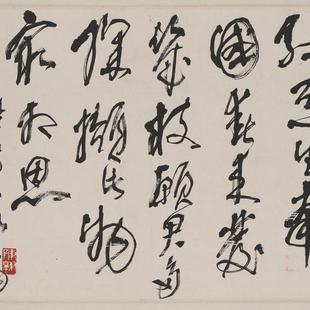 紅豆生南
國春来發
幾枝願君多
採擷此物
最相思